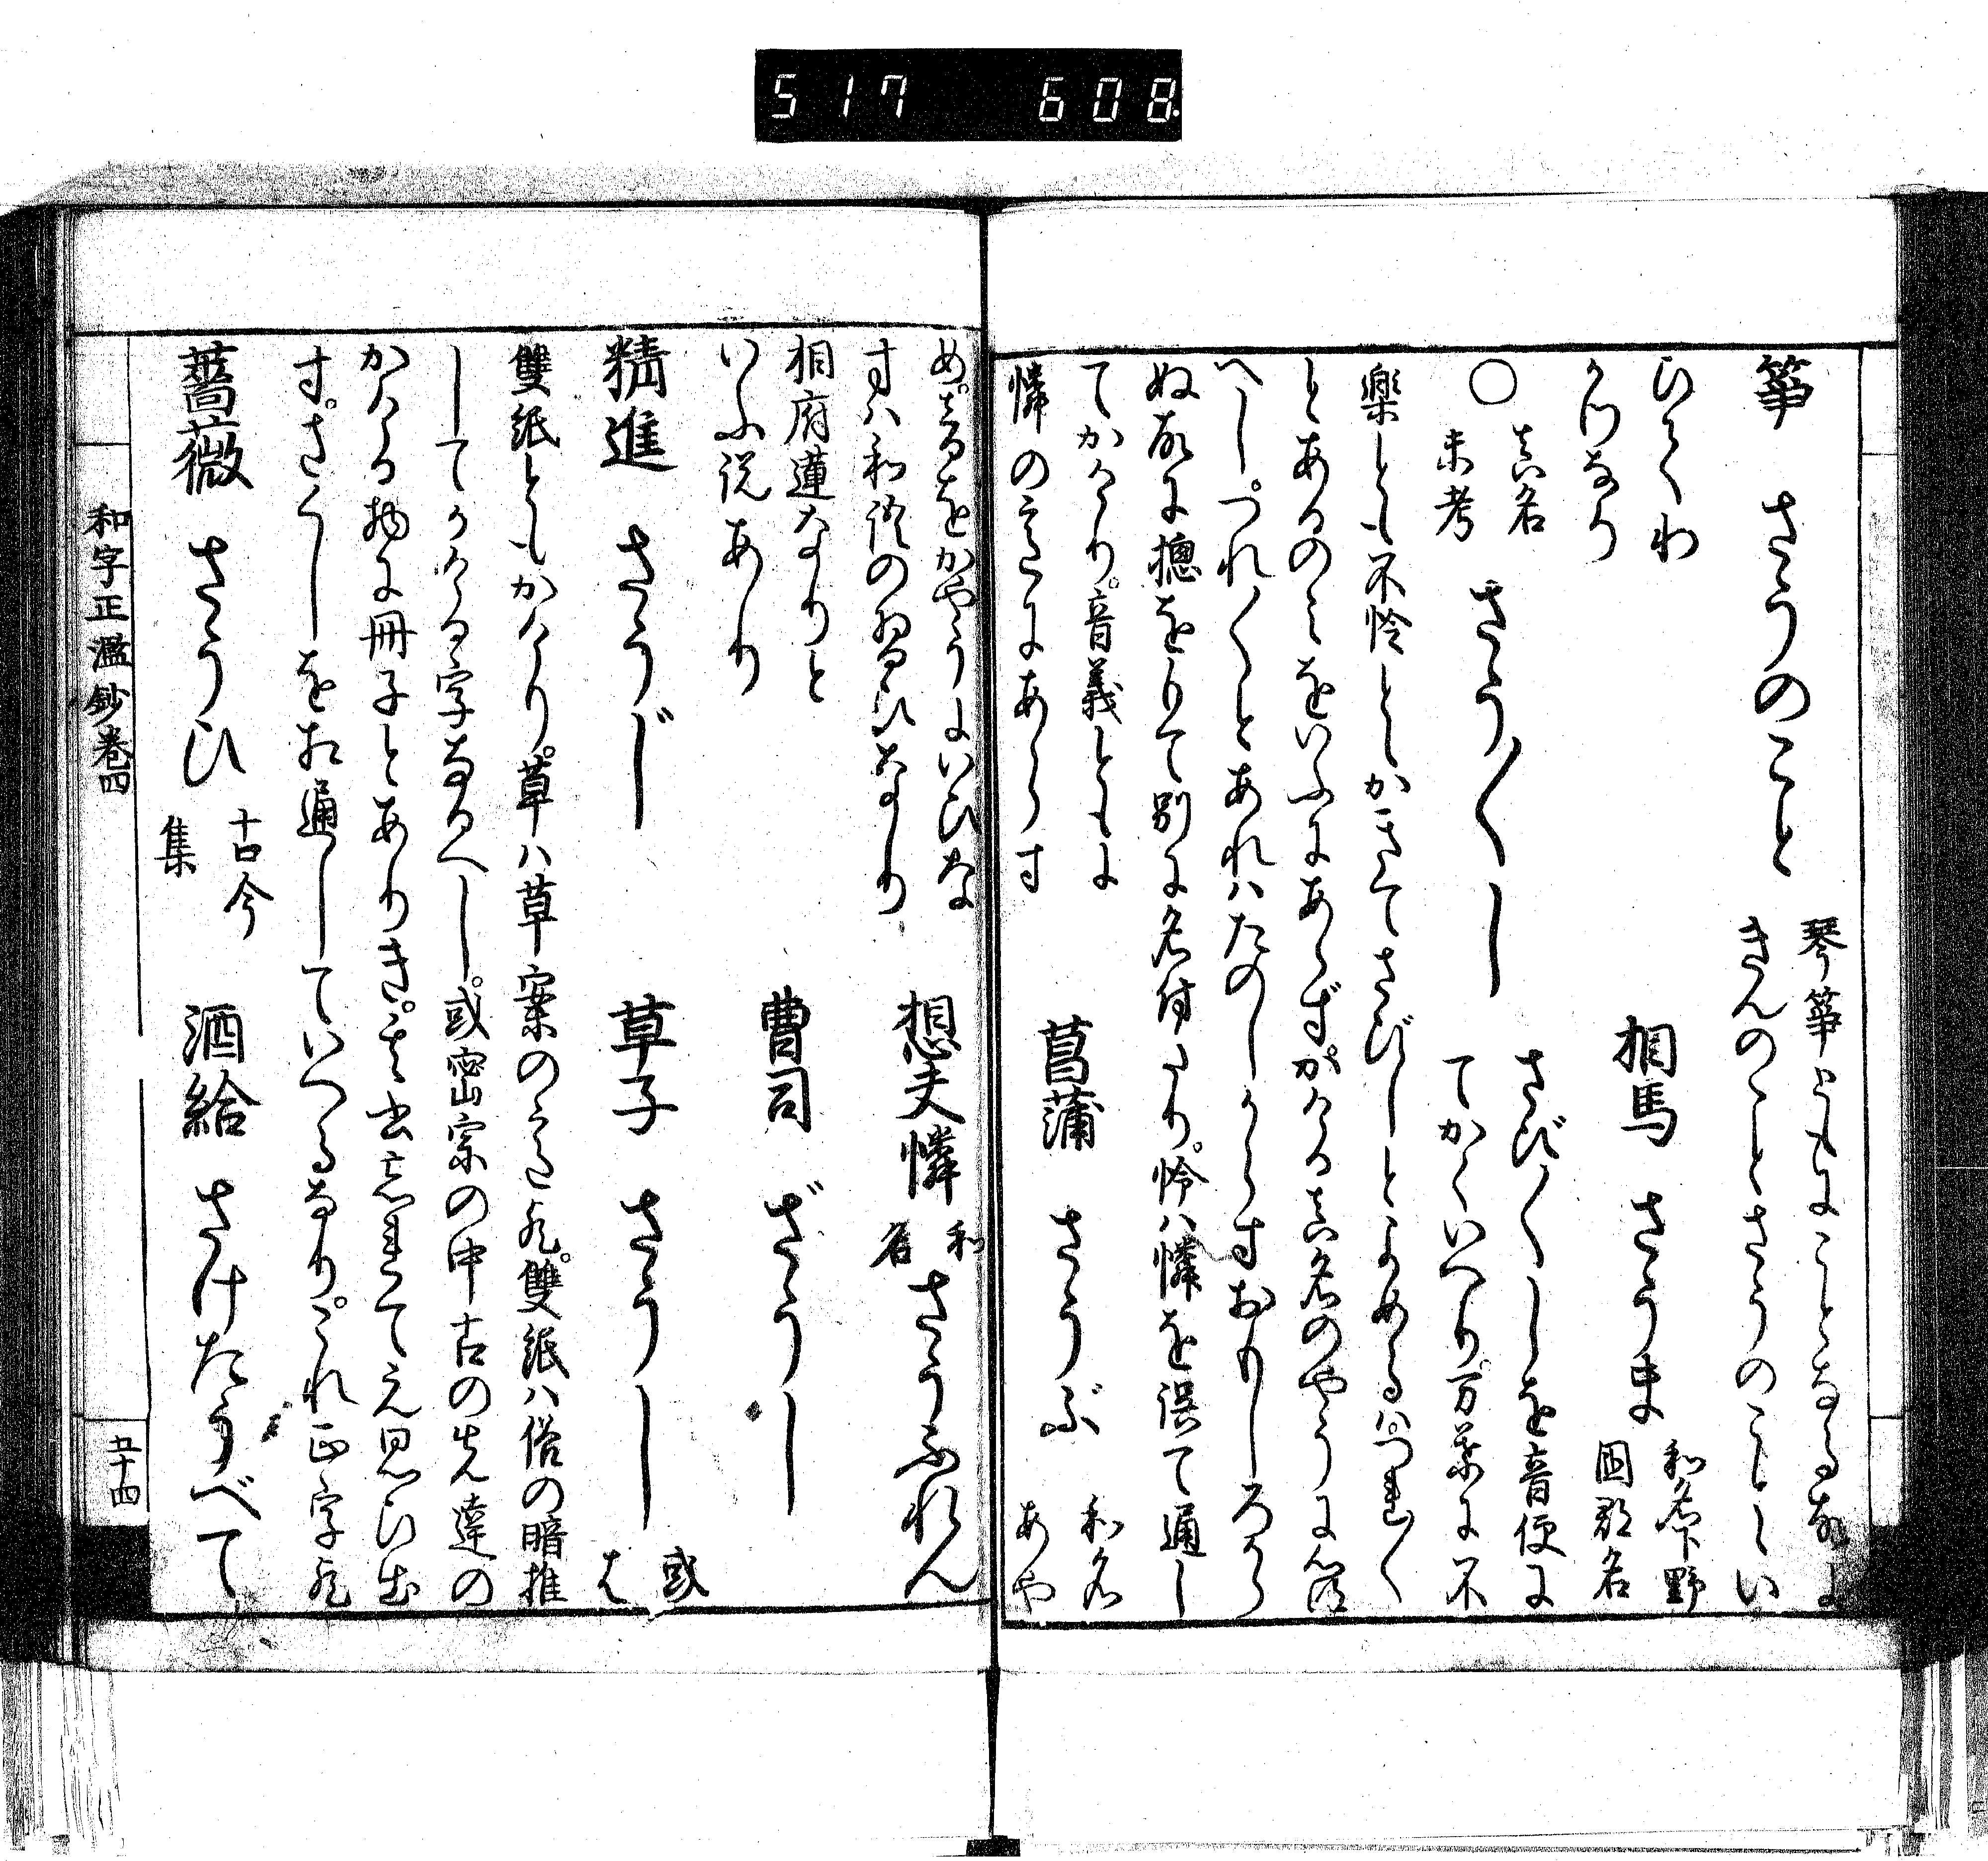 517 608
箏 さうのこと 琴箏ともにことなる故に
きんのことさうのことゝい
ひてわ
かつなり
相馬 さうま 和名下野
國郡名
○ 真名
未考
さう〳〵し さび〳〵しを音便に
てかくいへり。万葉に不
楽とも不怜とかきてさびしとよめるは。つれ〳〵
とあるのみをいふにあらず。かゝる真名のやうに
へし。つれ〳〵とあれはたのしからすおもしろから
ぬ故に摠をりて別に名付たり。怜は憐を誤て通し
てかけり。音義ともに
憐の
にあらす
菖蒲 さうぶ 和名
あや
め。
をかやうにいひな
すは和語の習ひなり
想夫憐 和
名 さうふれん
相府蓮なりと
いふ説あり
曹司 ざうし
精進 さうじ
草子 さうし 或
は
雙紙ともかけり。草は草案の
雙紙は俗の暗推
してかける字なるへし。或密宗の中古の先達の
かける物に冊子とありき。
て思ひ出
す。さくしを
通していへるなり。これ正字
薔薇 さうひ 古今
集
酒給 さけたうべて
和字正濫鈔巻四
五十四